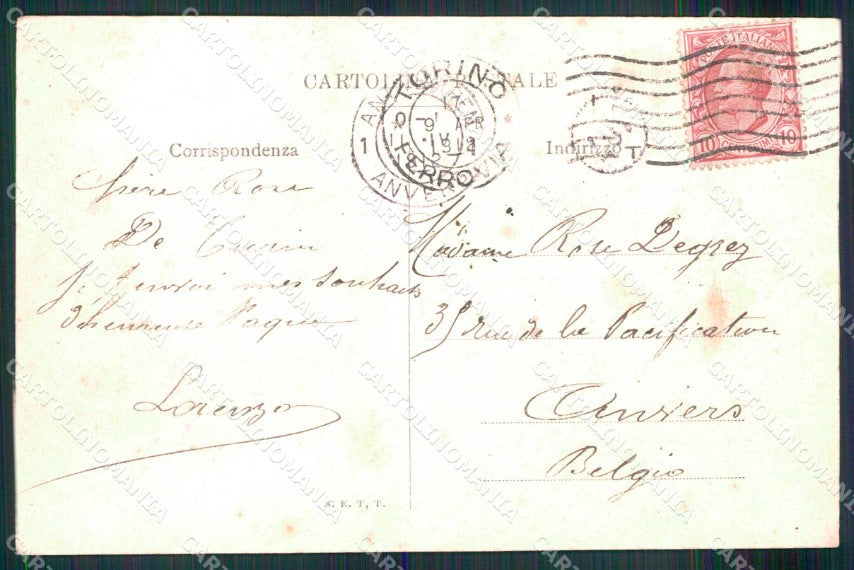 CARTOLINA POSTALE
Corrispondenza
Indirizzo
TORINO
FERROVIA
ANVERS
1912
POSTE ITALIANE
10 CENTESIMI 10
Chère Rose
De Turin
je t'envoi mes souhaits
d'heureuse Paques
Lorenzo
Madame Rose Degrez
35 rue de la Pacification
Anvers
Belgio
S. E. T. T.
CARTOLINOMANIA